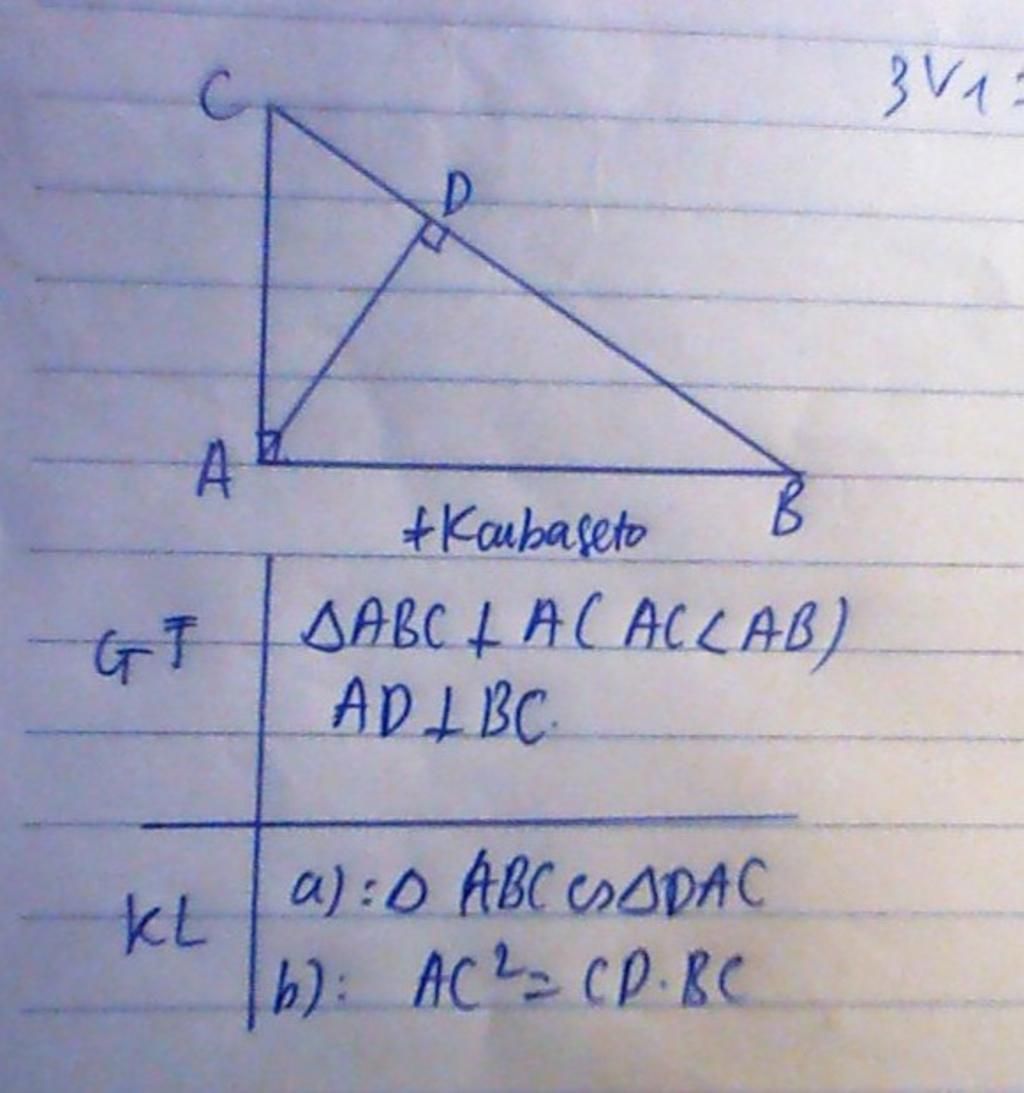 3V1
C
D
A
B
+Kaubaseto
GT
ΔABC ⊥ A ( AC < AB )
AD ⊥ BC.
KL
a) : Δ ABC ∽ ΔDAC
b) : AC² = CD . BC